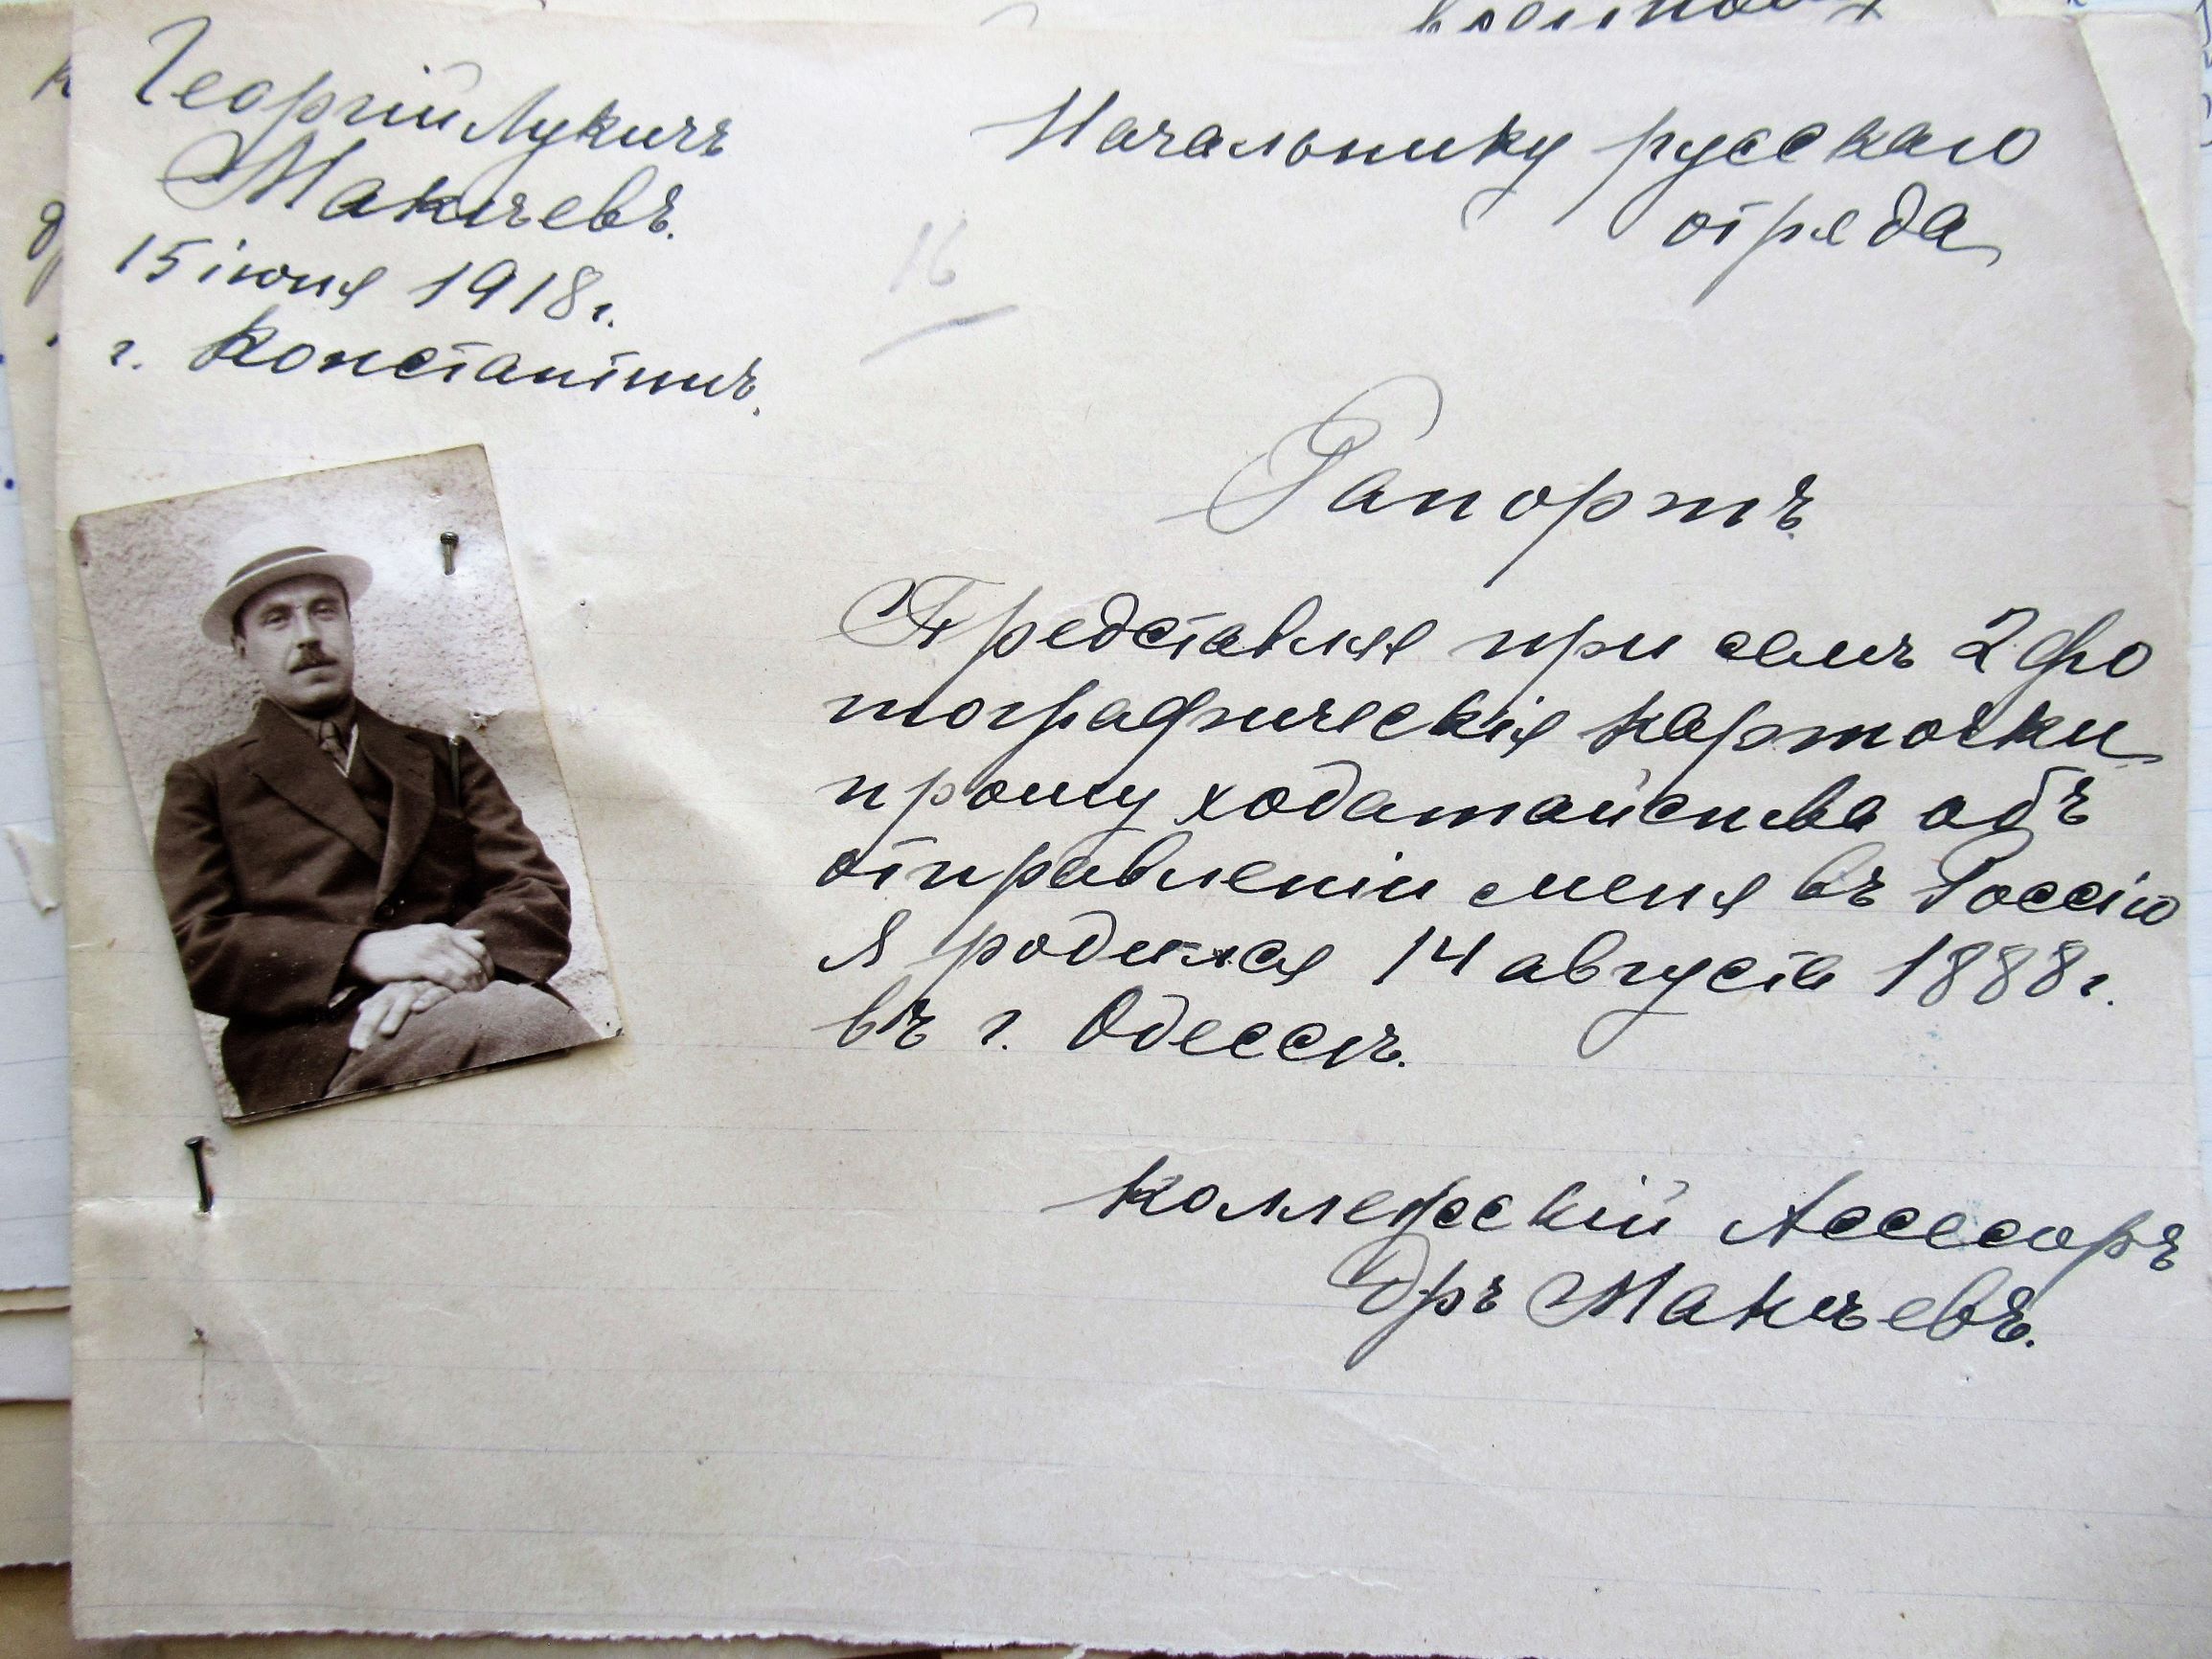 Георгій Лукичъ
Макѣевъ.
15 іюня 1918 г.
г. Константинъ.
16
Начальнику русскаго
отряда
Рапортъ.
Представляя при семъ 2 фо
тографическія карточки
прошу ходатайства объ
отправленіи меня въ Россію
Я родился 14 августа 1888 г.
въ г. Одессѣ.
Коллежскій Асессоръ
Дръ Макѣевъ.